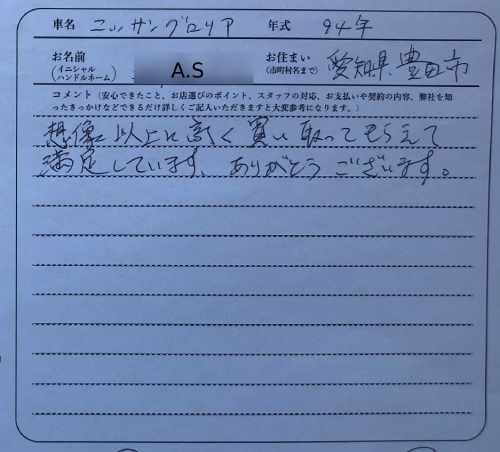 車名 ニッサングロリア 年式 94年
お名前 (イニシャル ハンドルネーム) A.S お住まい (市町村名まで) 愛知県豊田市
コメント（安心できたこと、お店選びのポイント、スタッフの対応、お支払いや契約の内容、弊社を知
ったきっかけなどできるだけ詳しくご記入いただきますと大変参考になります。）
想像以上に高く買い取ってもらえて
満足しています、ありがとうございます。